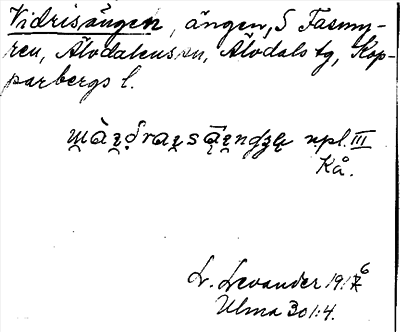 Vidrisängen, ängen, S Fasmy-
ren, Älvdalens sn, Älvdals tg, Kop-
parbergs l.
npl. III
Kå.
L. Levander 1916
Ulma 301:4.